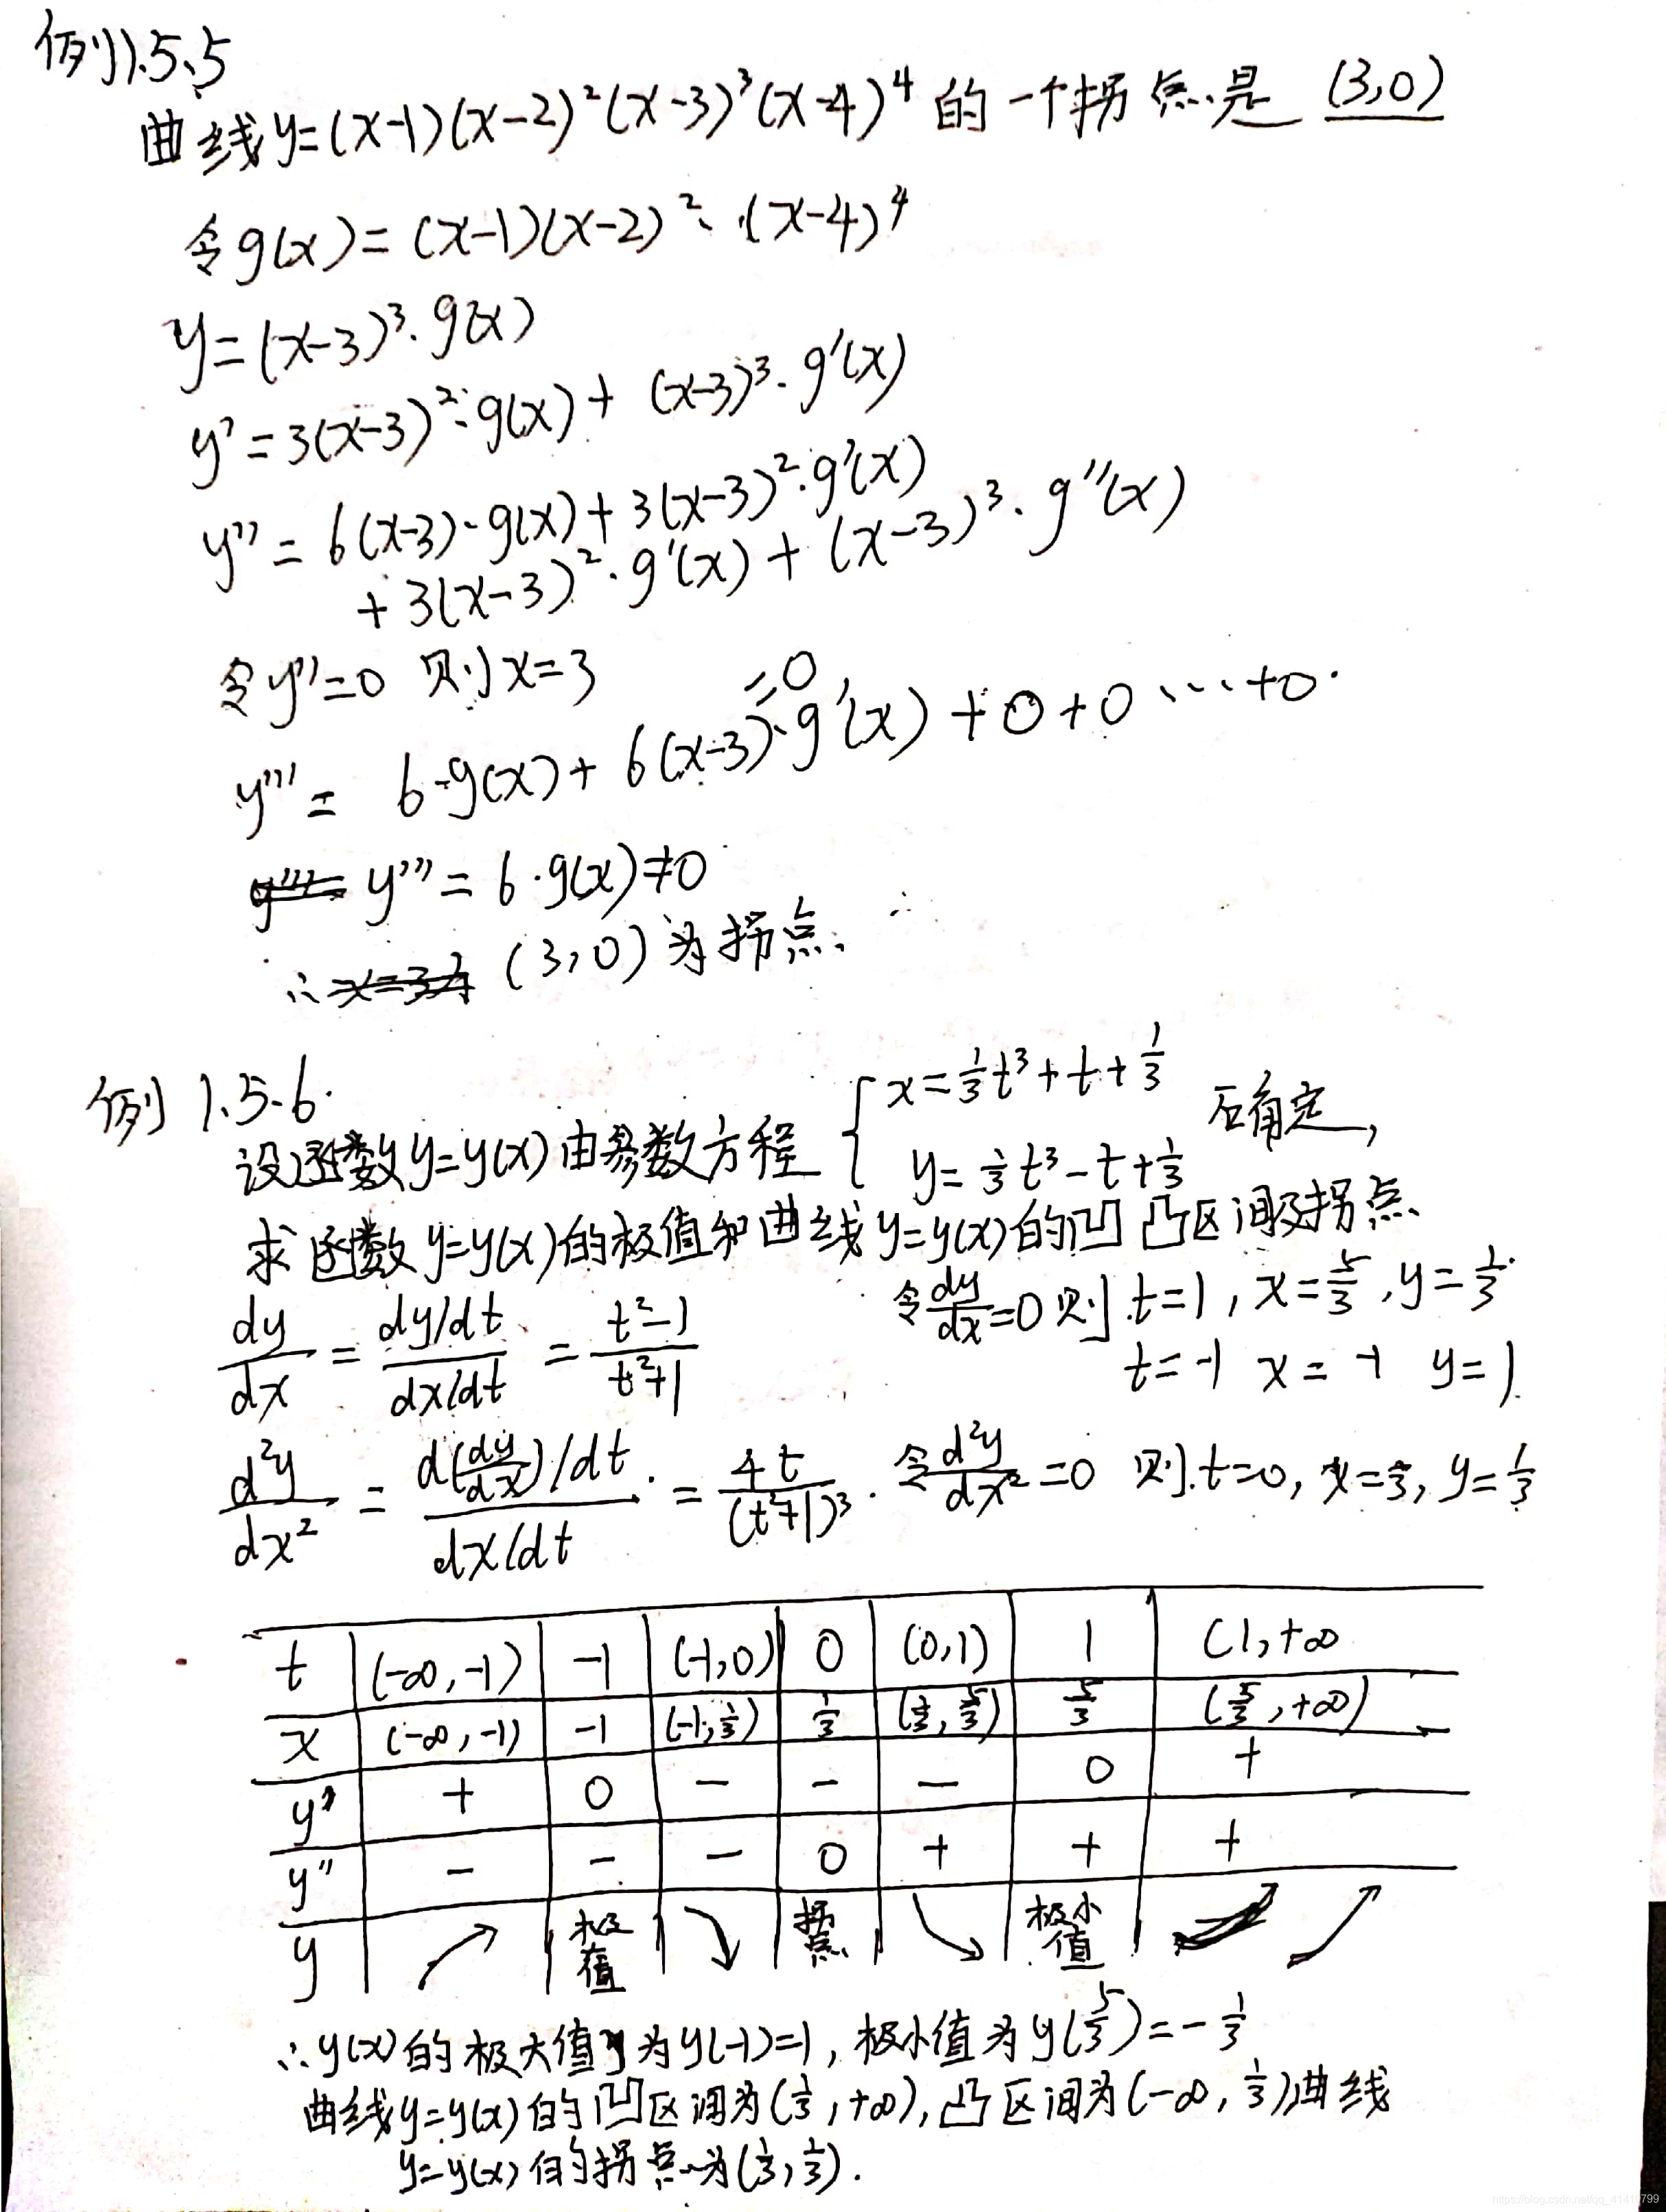 例1.5.5
曲线y=(x-1)(x-2)²(x-3)³(x-4)⁴的一个拐点是 (3,0)
令g(x)=(x-1)(x-2)²·(x-4)⁴
y=(x-3)³·g(x)
y'=3(x-3)²·g(x)+(x-3)³·g'(x)
y''=6(x-3)·g(x)+3(x-3)²·g'(x)
+3(x-3)²·g'(x)+(x-3)³·g''(x)
令y''=0 则x=3
=0
y'''= 6·g(x)+6(x-3)·g'(x)+0+0…+0
y'''=6·g(x)≠0
∴(3,0)为拐点.
例1.5.6
设函数y=y(x)由参数方程 { x=⅓t³+t+⅓ 石角定,
y=⅓t³-t+⅓
求函数y=y(x)的极值和曲线y=y(x)的凹凸区间及拐点
dy/dx = (dy/dt)/(dx/dt) = (t²-1)/(t²+1) 令dy/dx=0则t=1, x=5/3, y=⅓
t=-1 x=-1 y=1
d²y/dx² = (d(dy/dx)/dt)/(dx/dt) = 4t/(t²+1)³. 令d²y/dx²=0 则t=0, x=⅓, y=⅓
t (-∞,-1) -1 (-1,0) 0 (0,1) 1 (1,+∞
x (-∞,-1) -1 (-1,⅓) ⅓ (⅓,5/3) 5/3 (5/3,+∞)
y' + 0 - - - 0 +
y'' - - - 0 + + +
y ↗ 极值 ↘ 拐点 ↘ 极小值 ↗
∴y(x)的极大值为y(-1)=1,极小值为y(5/3)=-⅓
曲线y=y(x)的凹区间为(⅓,+∞),凸区间为(-∞,⅓)曲线
y=y(x)的拐点为(⅓,⅓).